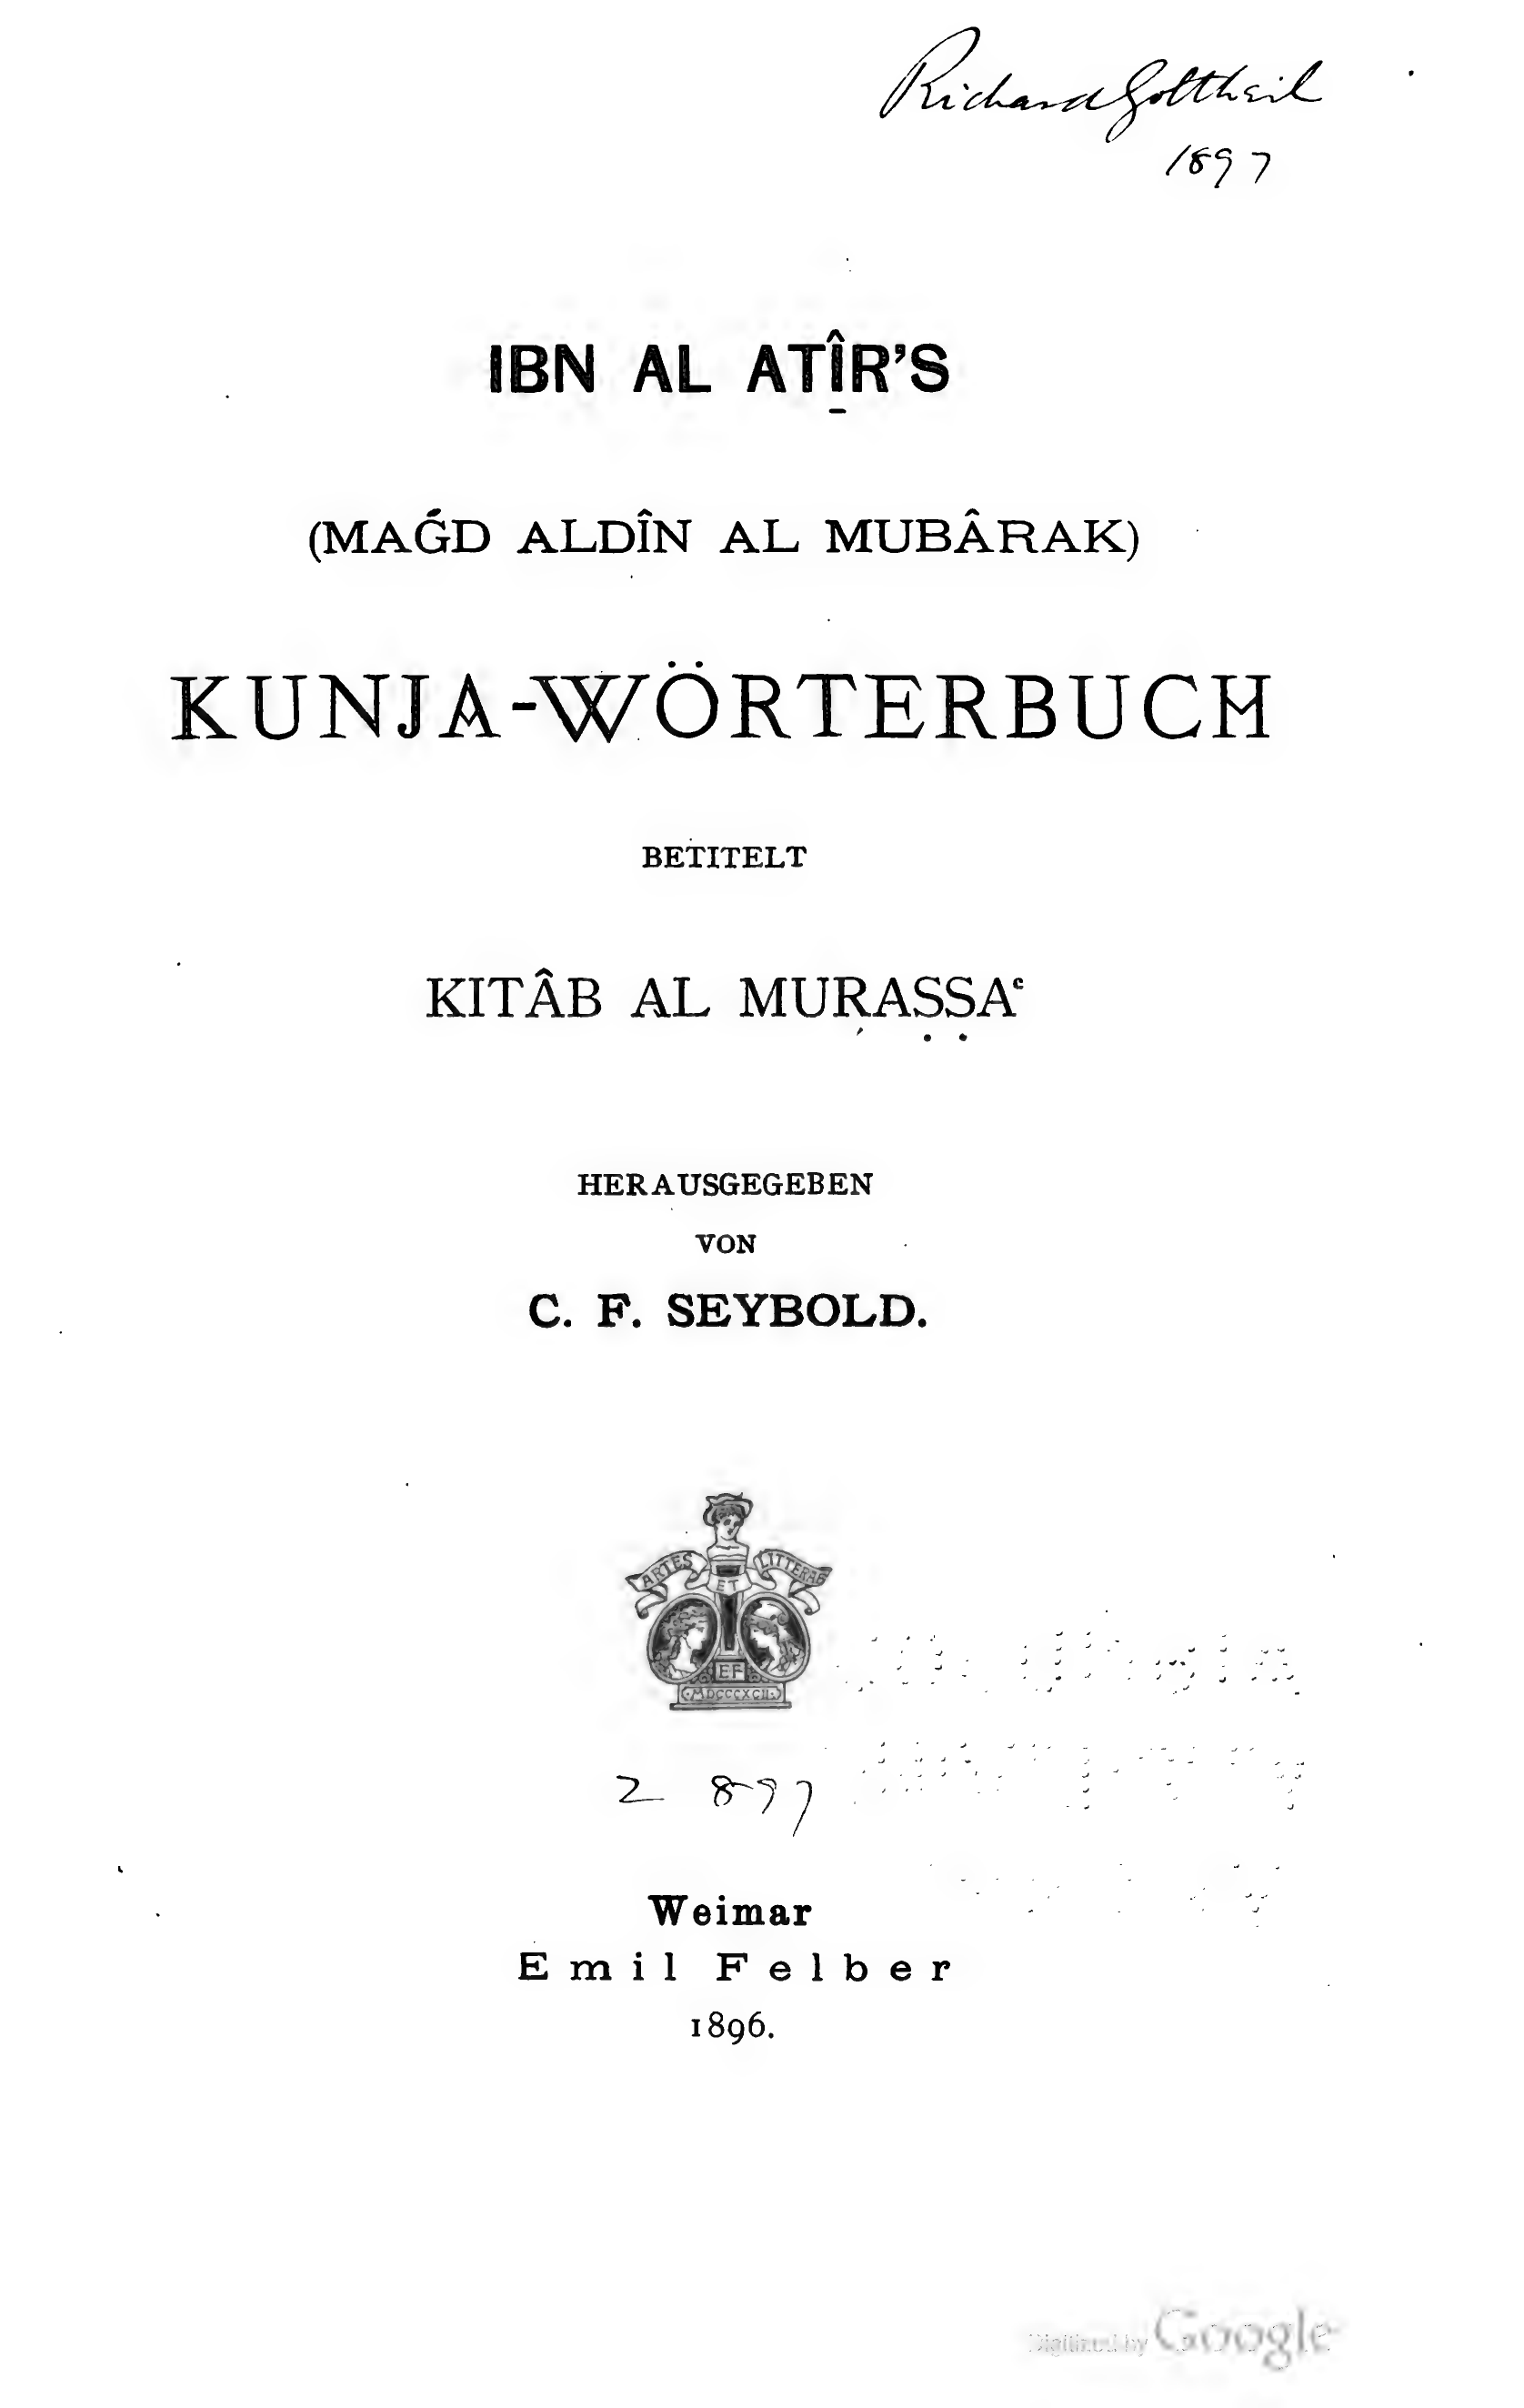 Richard Gottheil
1897
IBN AL ATÎR'S
(MAǴD ALDÎN AL MUBÂRAK)
KUNJA-WÖRTERBUCH
BETITELT
KITÂB AL MURAṢṢAʿ
HERAUSGEGEBEN
VON
C. F. SEYBOLD.
ARTES ET LITTERAE
EF
MDCCCXCII
2 897
Weimar
Emil Felber
1896.
Digitized by Google